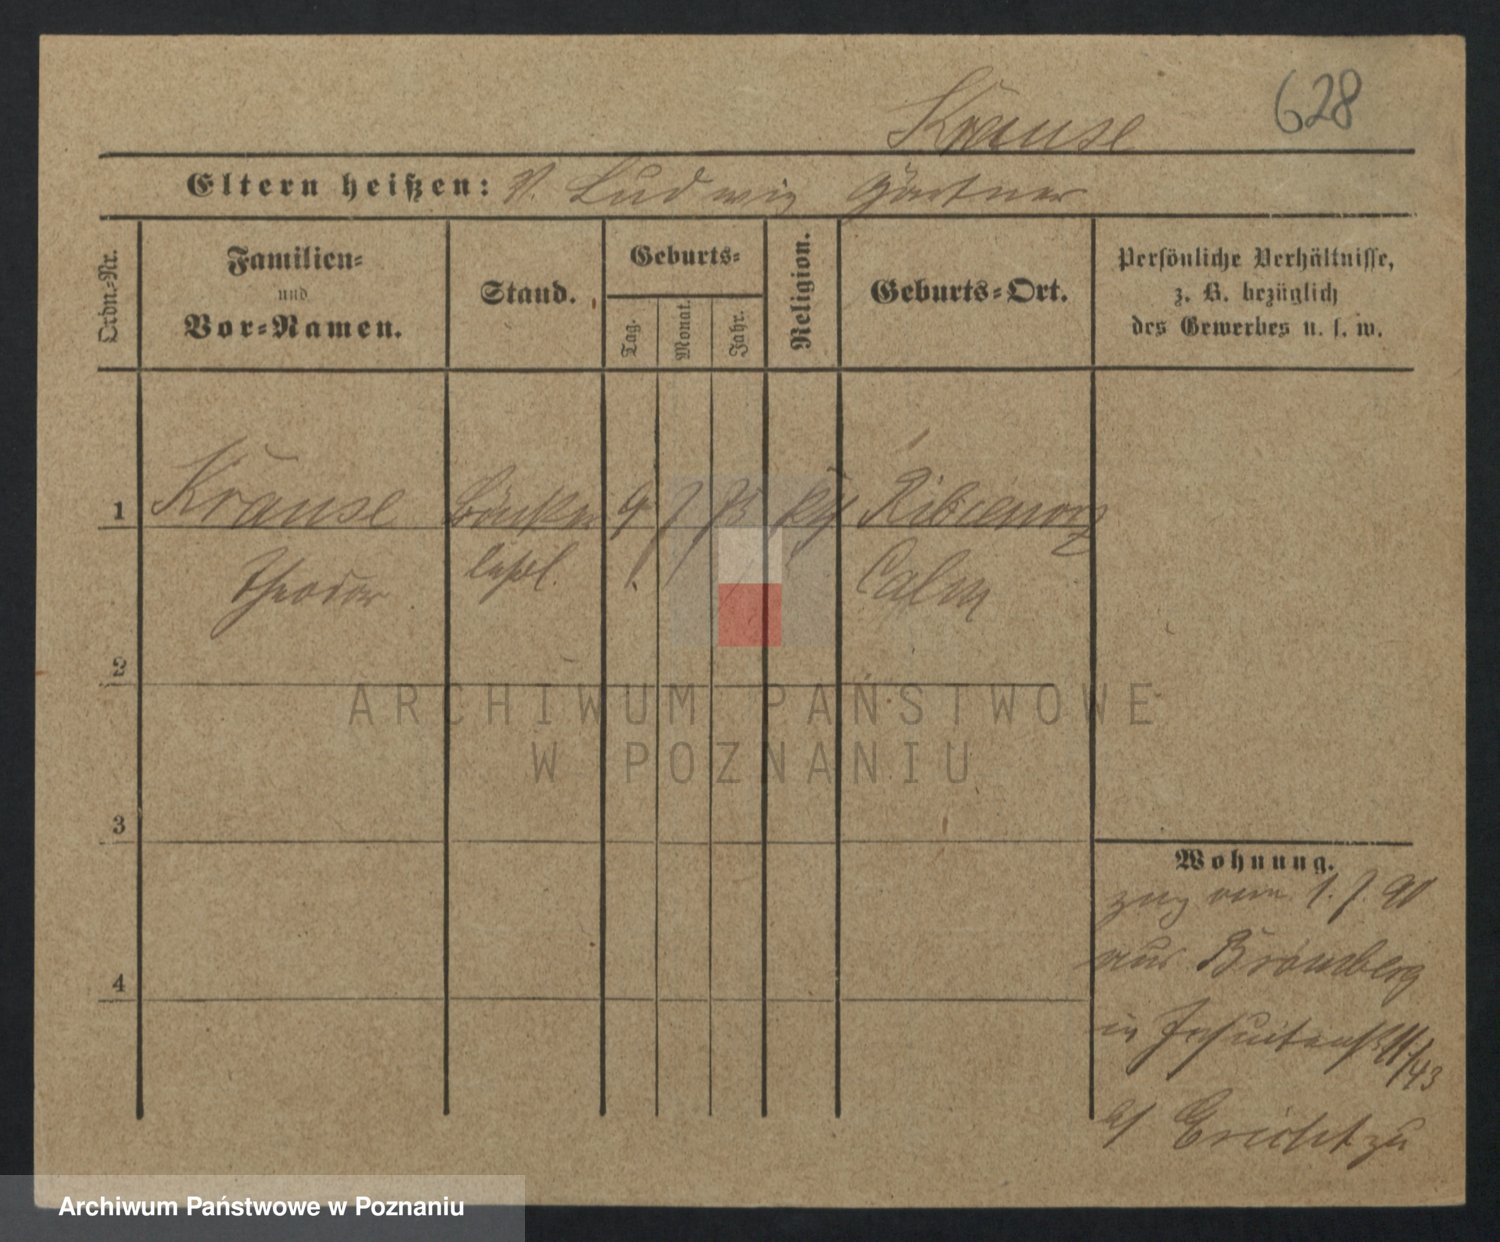 628
Krause
Eltern heißen: V. Ludwig Gärtner
Ordn.-Nr.
Familien-
und
Vor-Namen.
Stand.
Geburts-
Tag.
Monat.
Jahr.
Religion.
Geburts-Ort.
Persönliche Verhältnisse,
z. B. bezüglich
des Gewerbes u. s. w.
1 Krause
Theodor Culm
2
3
4
Wohnung.
zug vom 1. 7. 90
aus Bromberg
in Jesuitenstr 11/43
ARCHIWUM PAŃSTWOWE
W POZNANIU
Archiwum Państwowe w Poznaniu